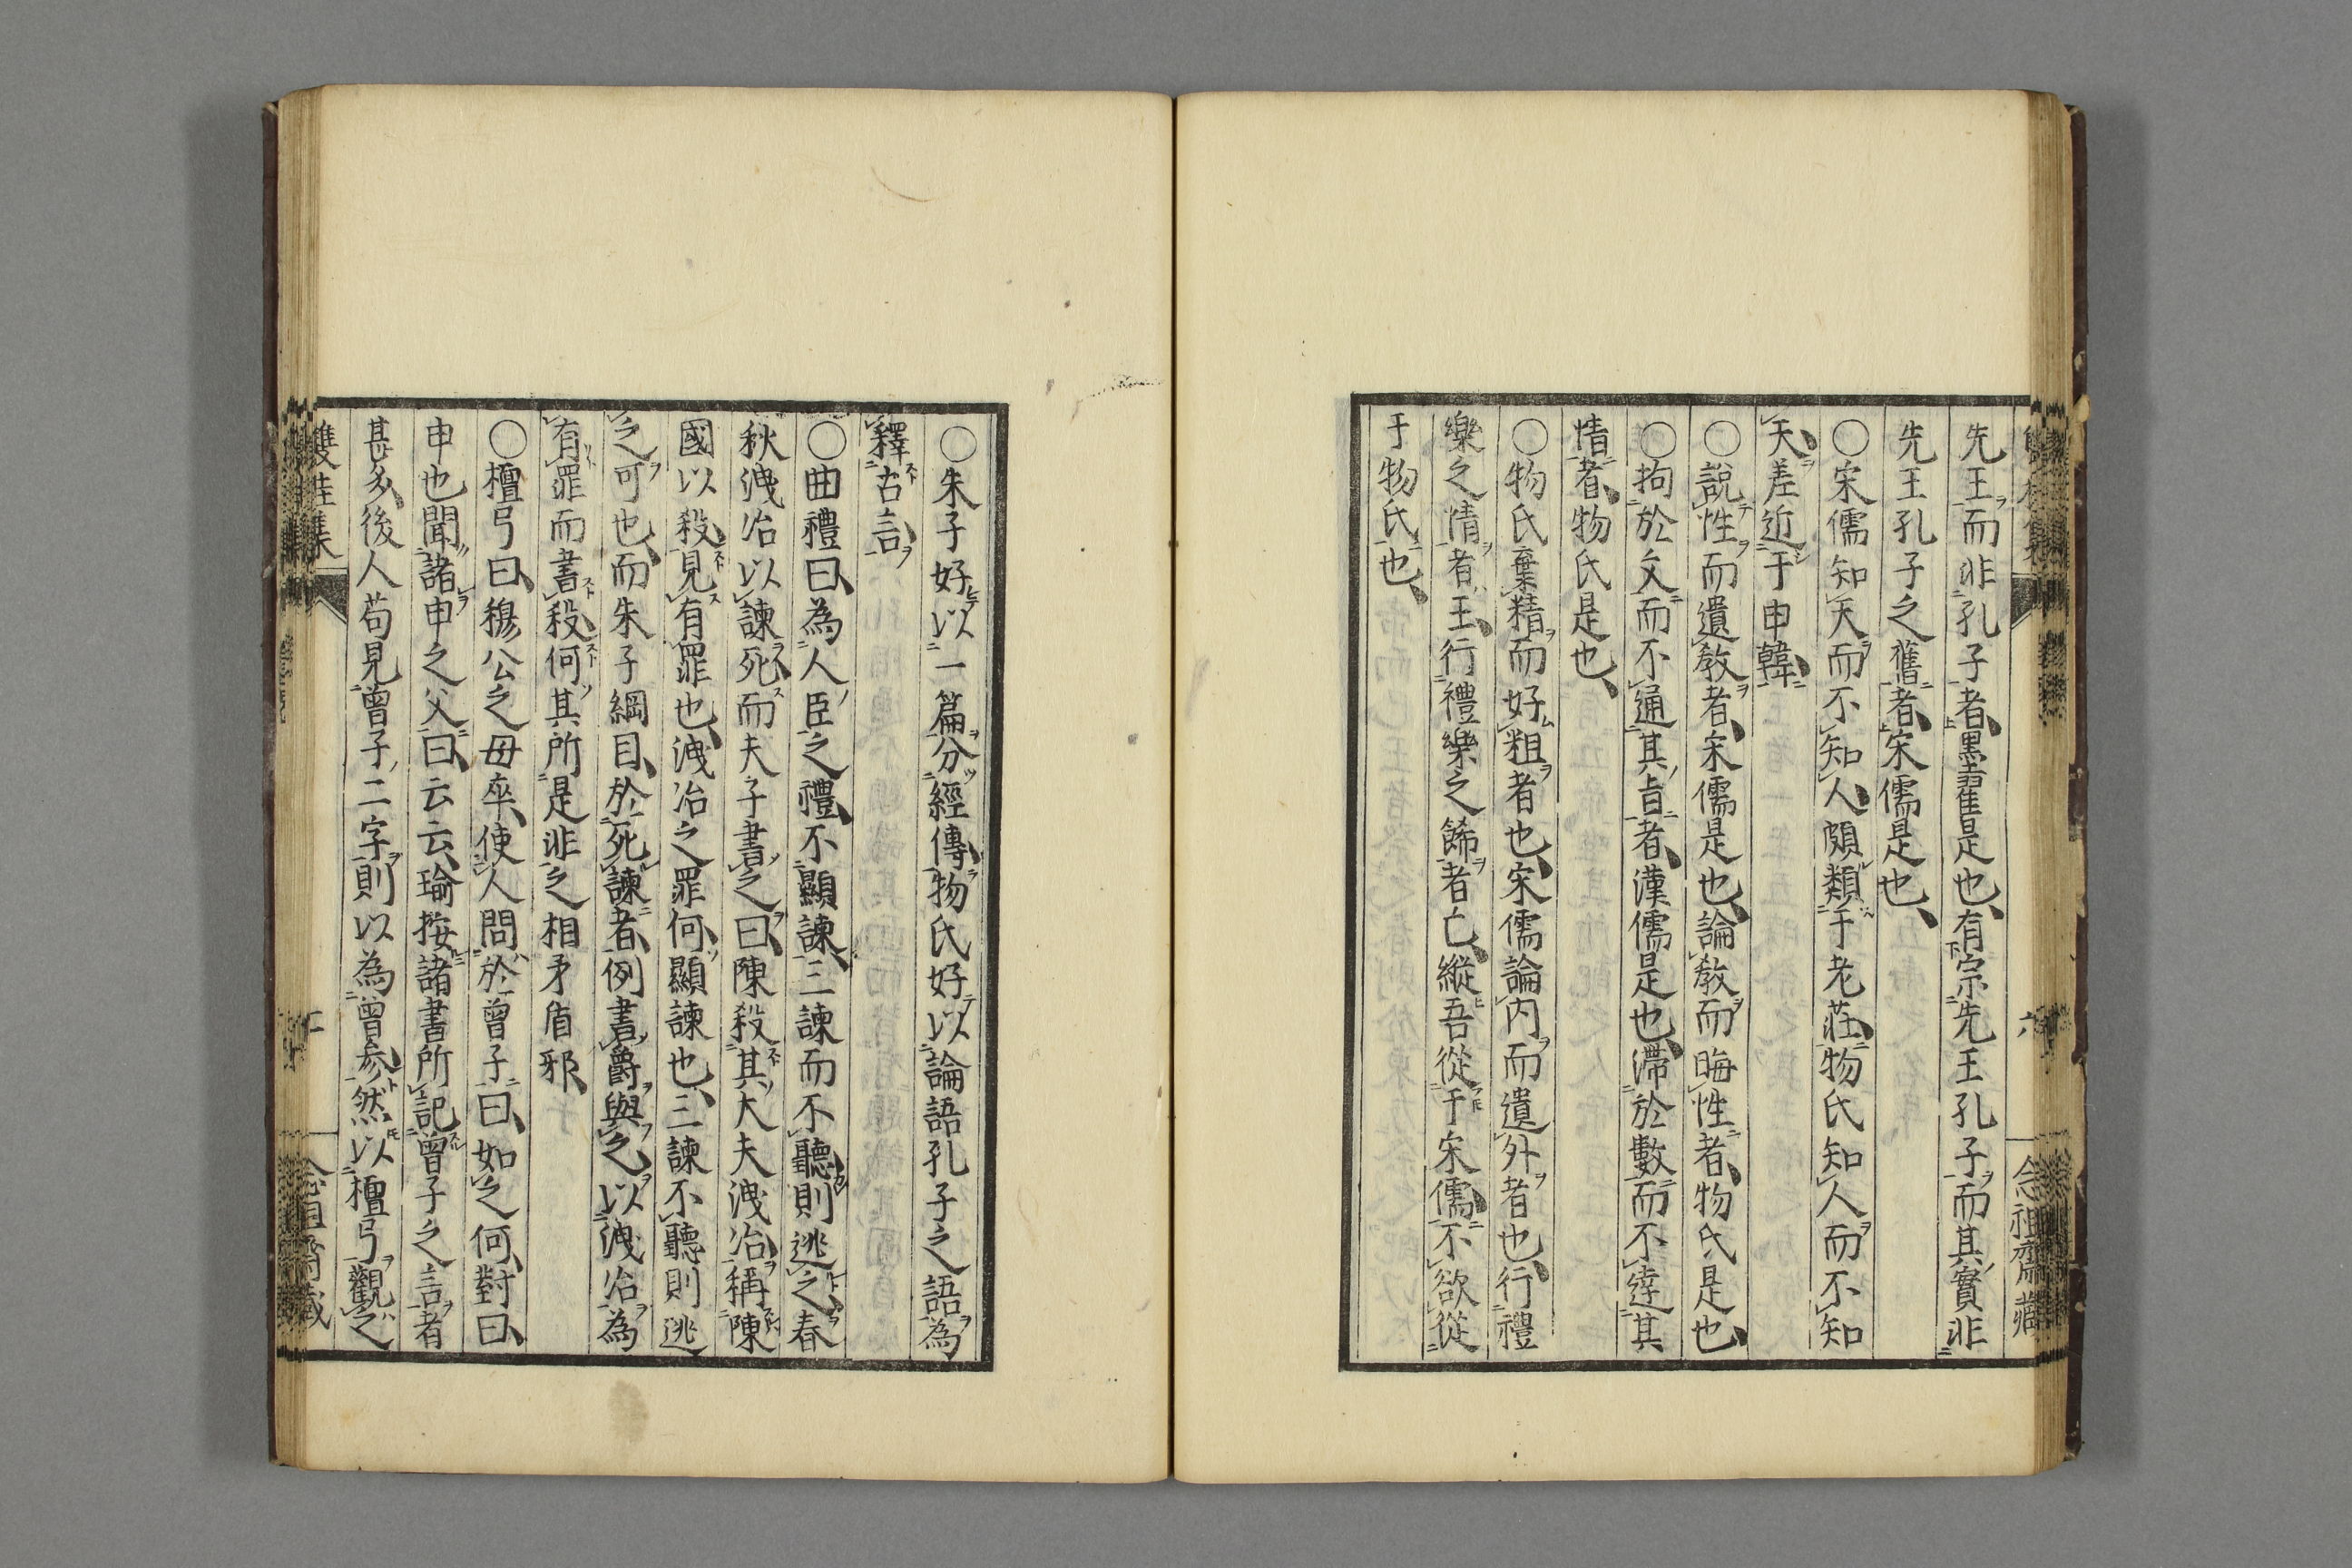 先王而非孔子者、墨翟是也、有宗先王孔子而其實非
先王孔子之舊者、宋儒是也、
〇宋儒知天而不知人、頗類于老莊、物氏知人而不知
天、差近于申韓、
〇說性而遺教者、宋儒是也、論教而晦性者、物氏是也、
〇拘於文而不通其旨者、漢儒是也、滯於數而不達其
情者、物氏是也、
〇物氏棄精而好粗者也、宋儒論内而遺外者也、行禮
樂之情者王、行禮樂之餙者亡、縱吾從于宋儒、不欲從
于物氏也、
〇朱子好以一篇分經傳、物氏好以論語孔子之語為
釋古言、
〇曲禮曰、為人臣之禮、不顯諫、三諫而不聽、則逃之、春
秋洩冶以諫死、而夫子書之曰、陳殺其大夫洩冶、稱陳
國以殺、見有罪也、洩冶之罪何、顯諫也、三諫不聽則逃
之可也、而朱子綱目、於死諫者、例書爵與之、以洩冶為
有罪而書殺、何其所是非之相矛盾邪、
〇檀弓曰、穆公之母卒、使人問於曾子曰、如之何、對曰、
申也聞諸申之父曰、云云、瑜按諸書所記曾子之言者
甚多、後人苟見曾子二字、則以為曾參、然以檀弓觀之
雙桂集
念祖齋藏
六
念祖齋藏